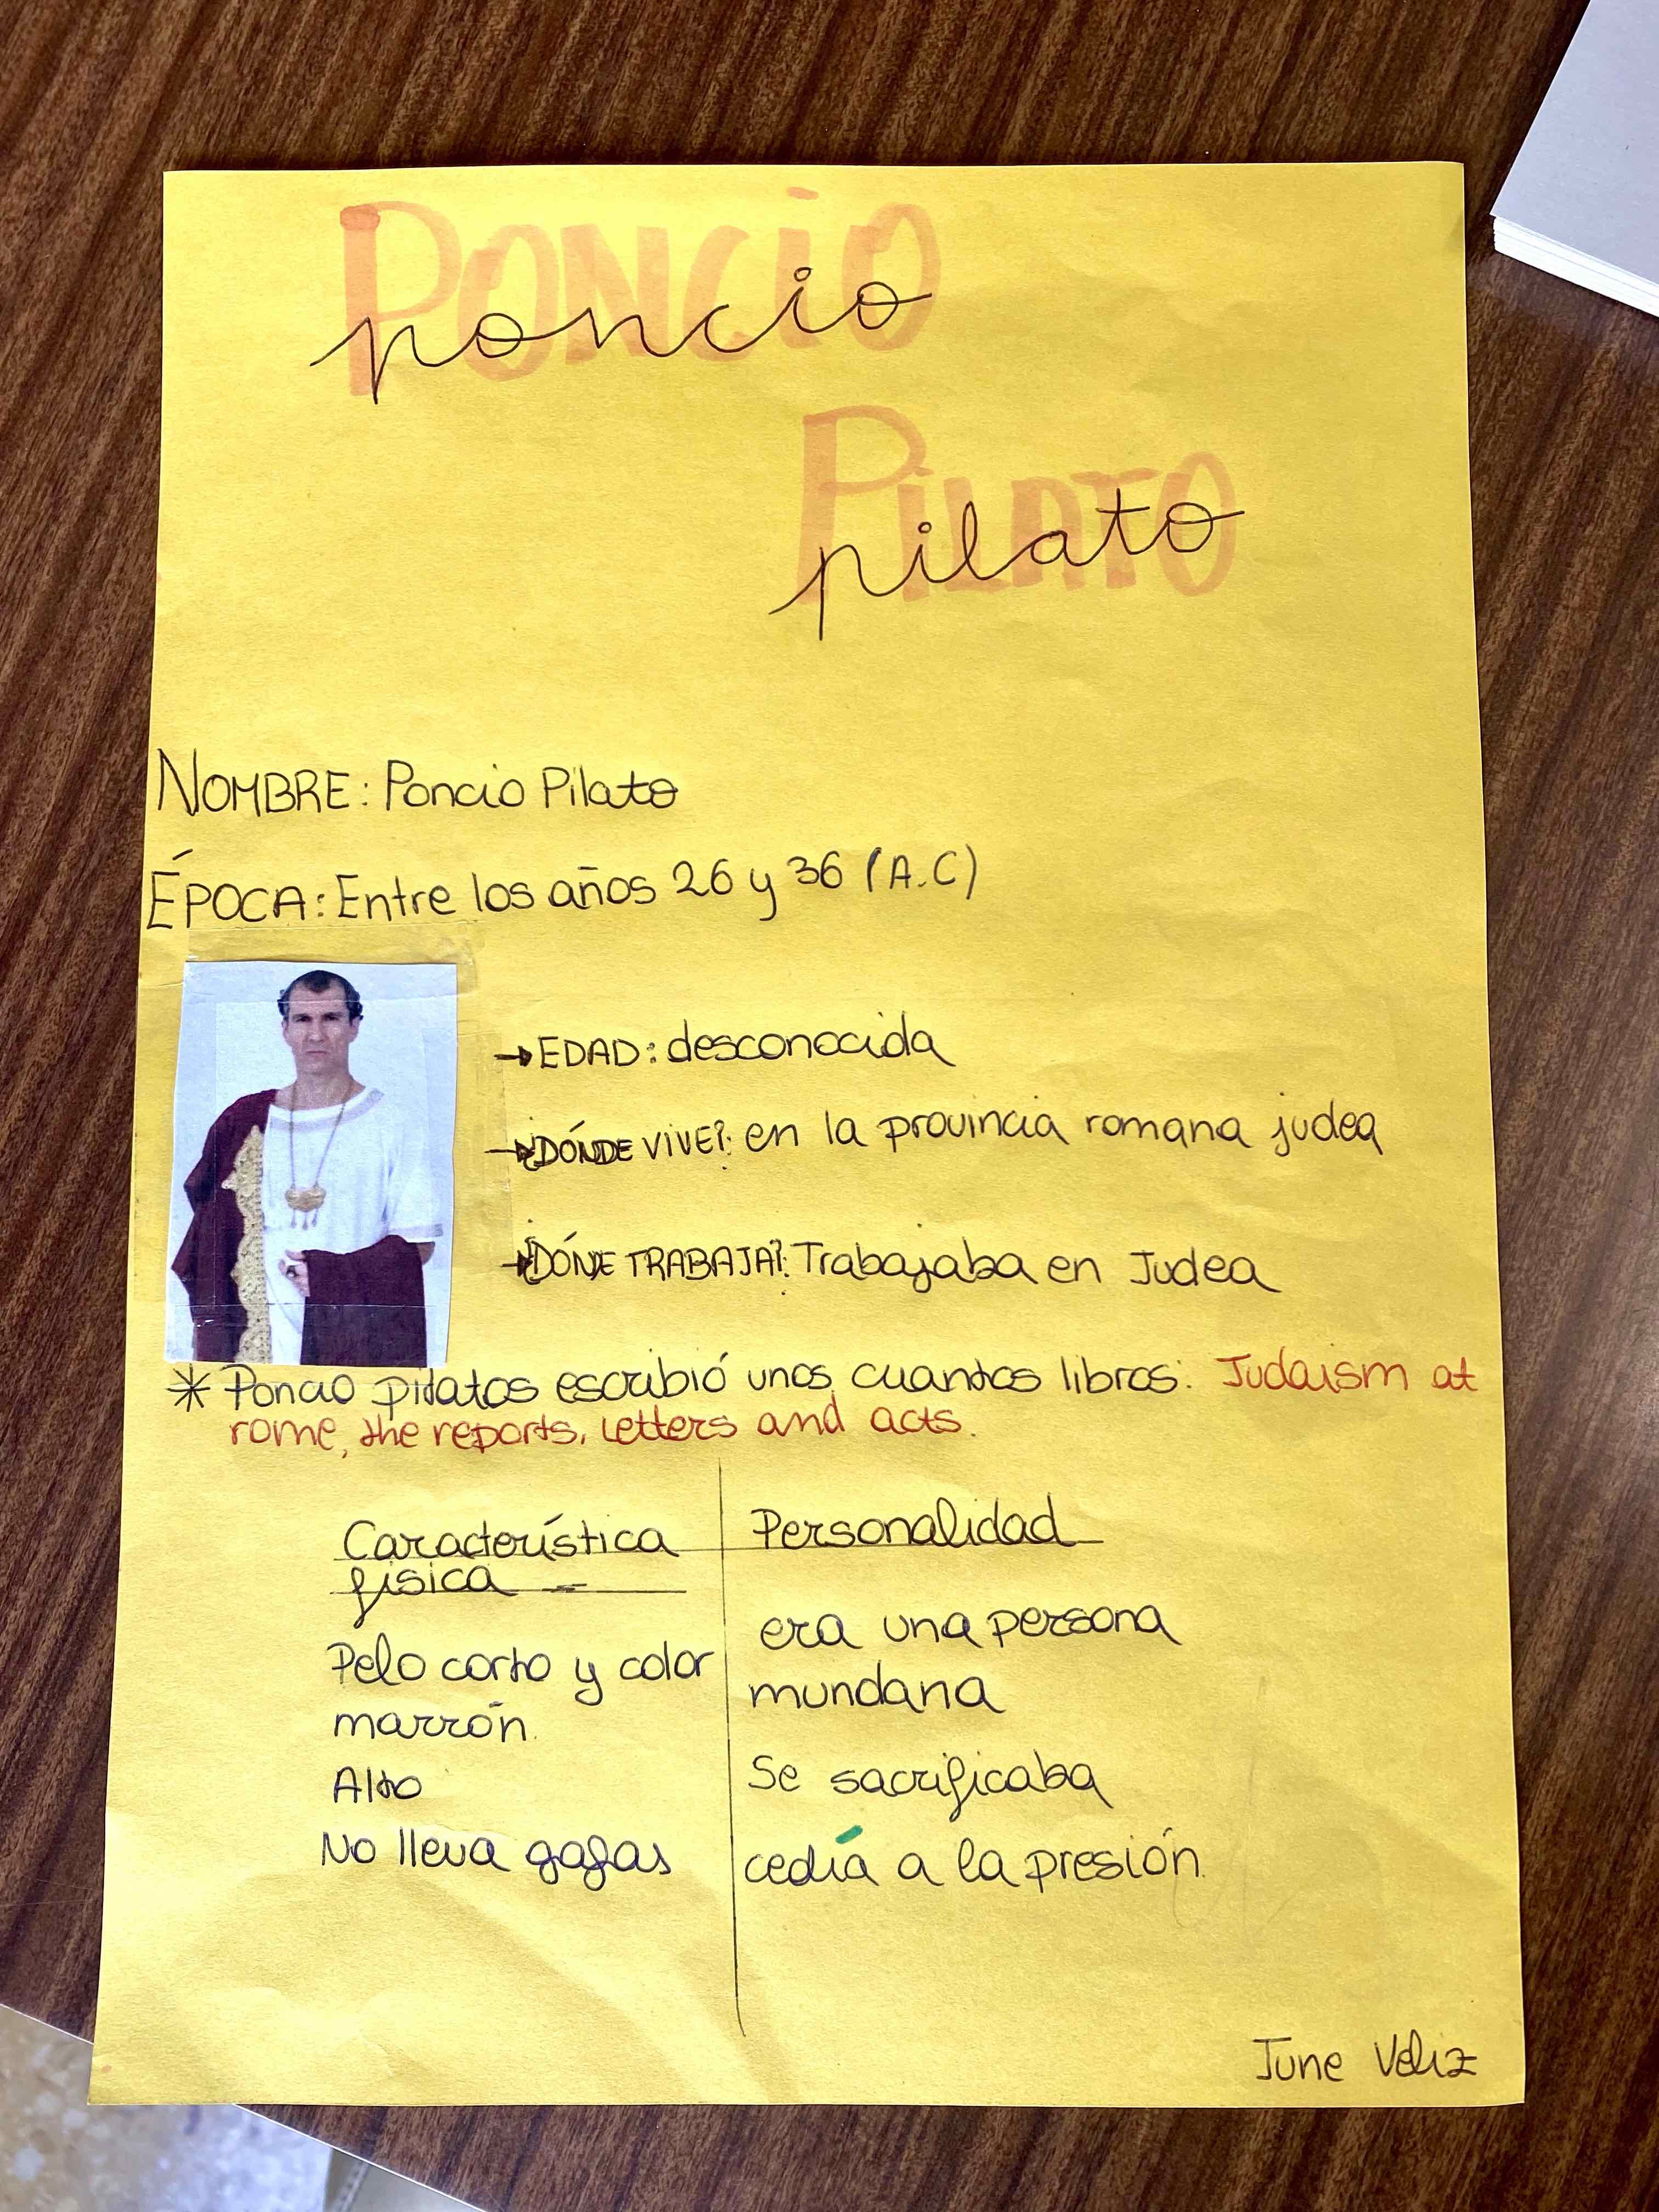 PONCIO
poncio
PILATO
pilato
NOMBRE: Poncio Pilato
ÉPOCA: Entre los años 26 y 36 (A.C)
→ EDAD: desconocida
→ ¿DÓNDE VIVE?: en la provincia romana judea
→ ¿DÓNE TRABAJA?: Trabajaba en Judea
* Poncio pilatos escribió unos cuantos libros: Judaism at
rome, the reports, letters and acts.
Característica
física
Pelo corto y color
marrón.
Alto
No lleva gafas
Personalidad
era una persona
mundana
Se sacrificaba
cedía a la presión.
June Veliz